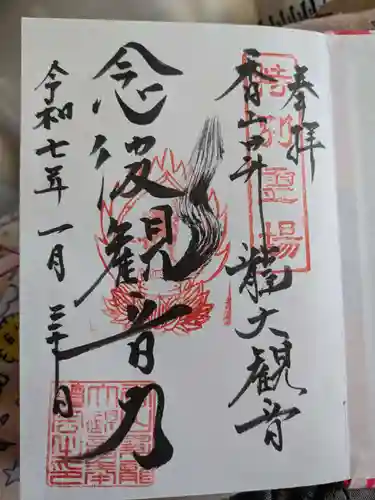 奉拝
特別霊場
香山昇龍大観音
念彼観音力
令和七年一月三十日